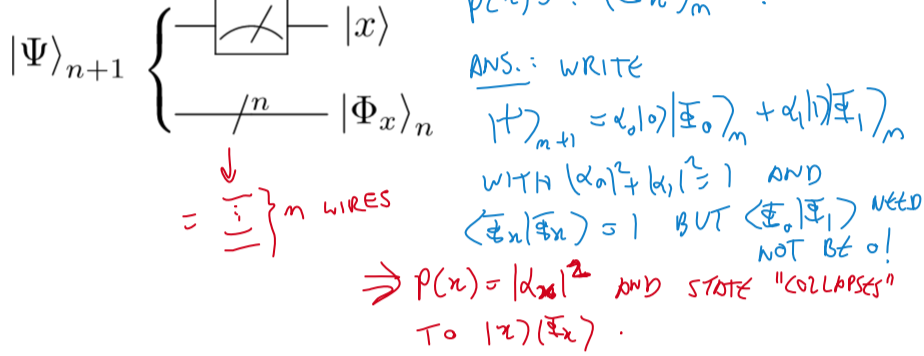 p(x) = ? |Φx⟩n ?
|x⟩
|Ψ⟩n+1
n
|Φx⟩n
ANS.: WRITE
|Ψ⟩n+1 = α0|0⟩|Φ0⟩n + α1|1⟩|Φ1⟩n
WITH |α0|²+|α1|²=1 AND
⟨Φx|Φx⟩=1 BUT ⟨Φ0|Φ1⟩ NEED
NOT BE 0!
= } n WIRES
⇒ P(x)=|αx|² AND STATE "COLLAPSES"
TO |x⟩|Φx⟩.